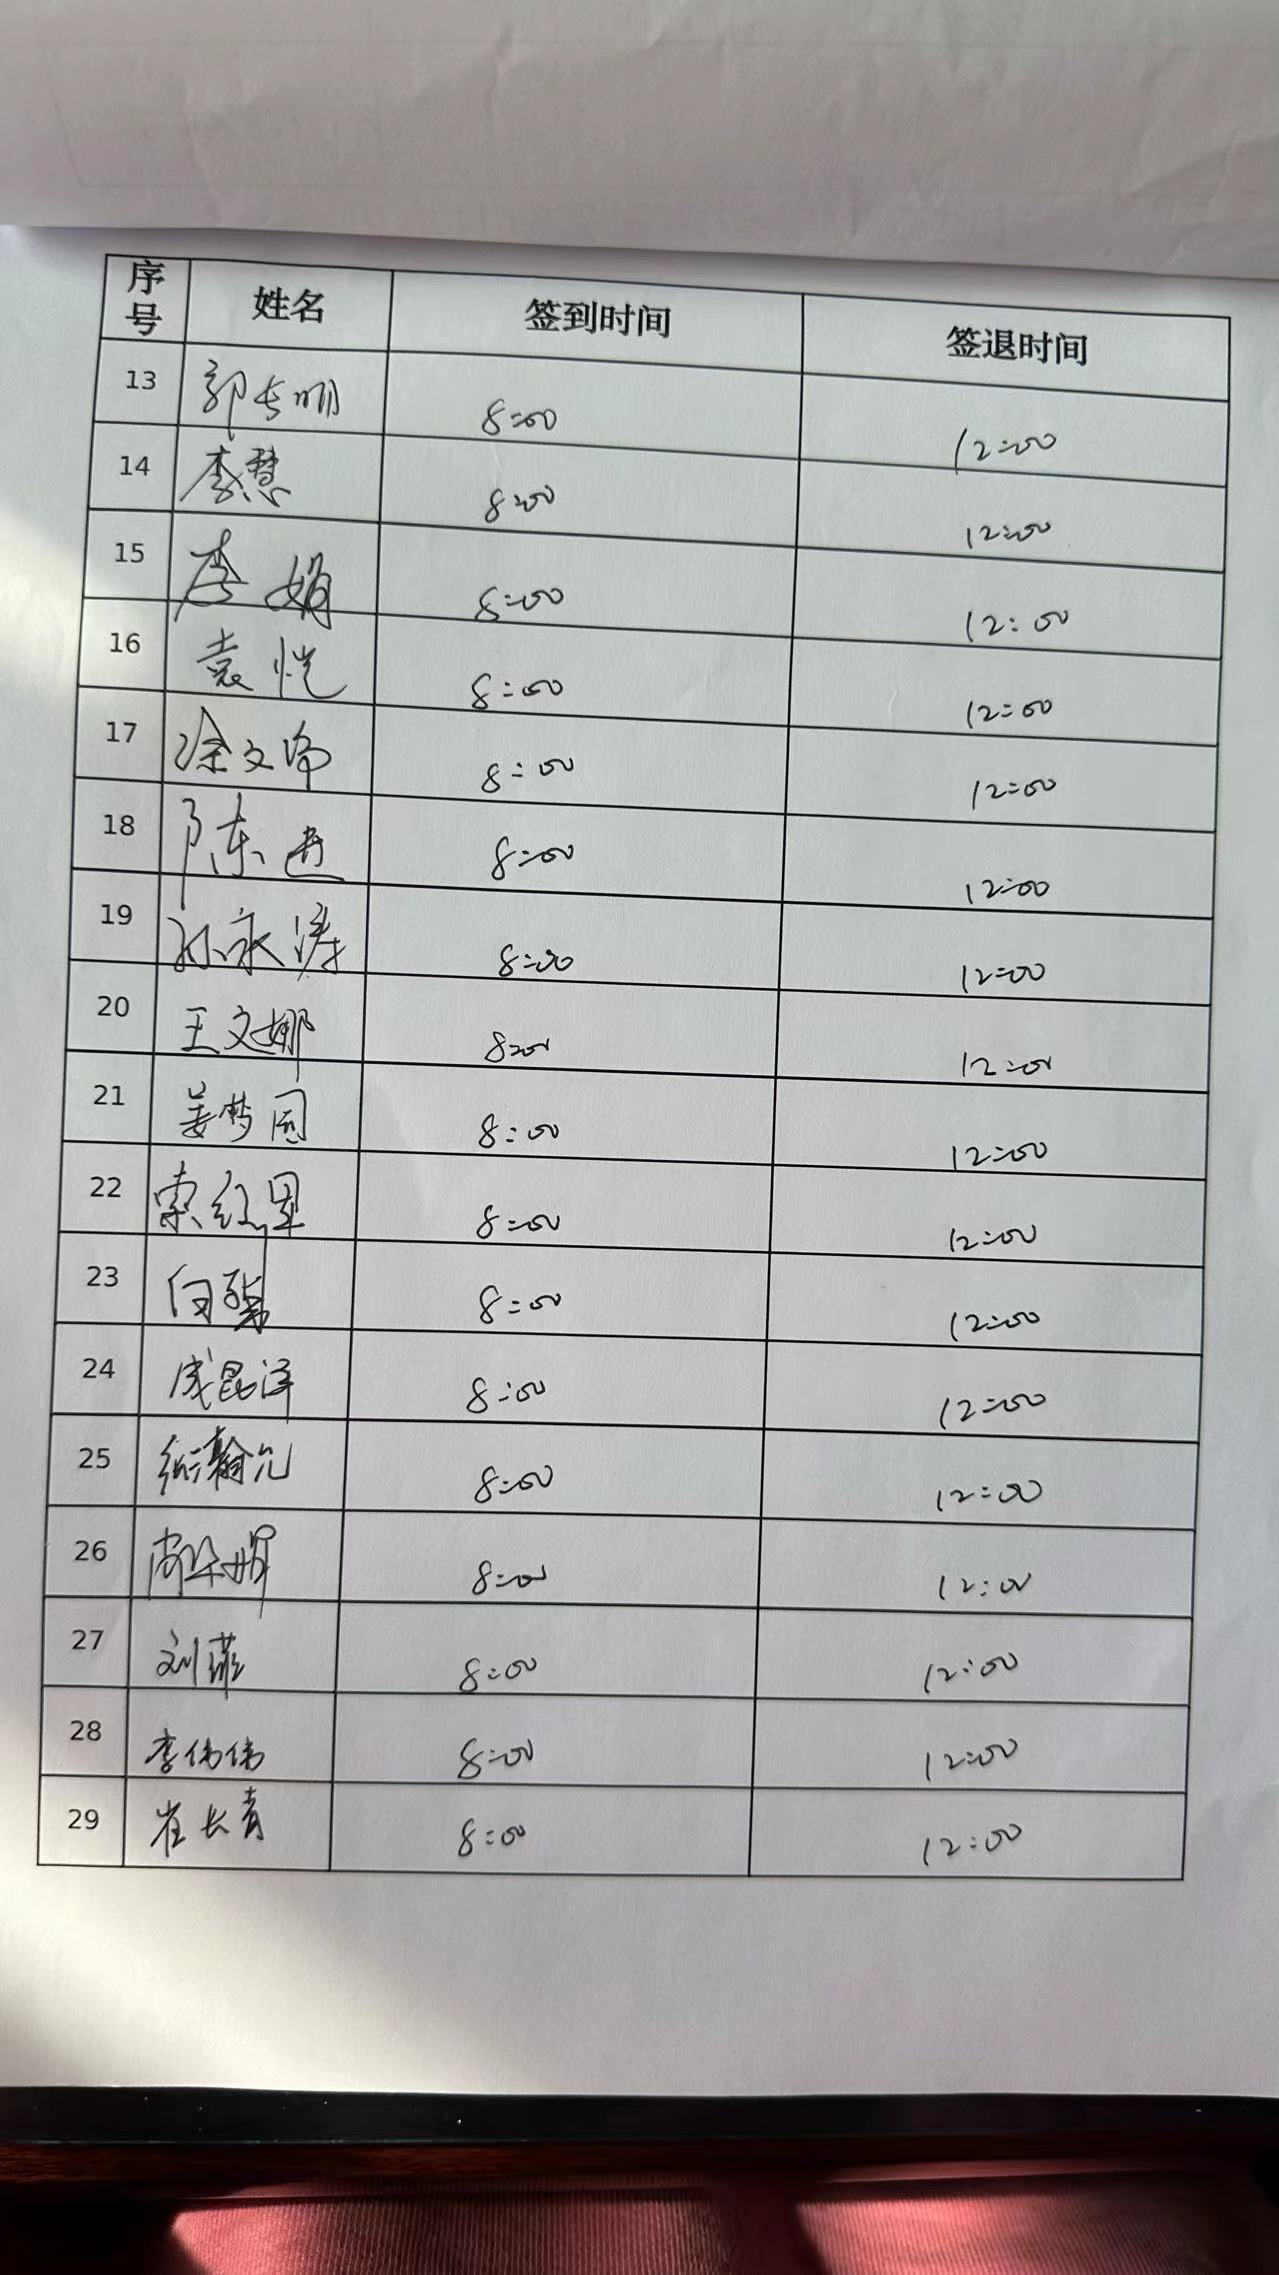 序号 姓名 签到时间 签退时间
13 郭长明 8:00 12:00
14 李慧 8:00 12:00
15 李娟 8:00 12:00
16 袁恺 8:00 12:00
17 徐文 8:00 12:00
18 陈进 8:00 12:00
19 孙永涛 8:00 12:00
20 王文娜 8:00 12:00
21 姜梦园 8:00 12:00
22 索红 8:00 12:00
23 白 8:00 12:00
24 成昆泽 8:00 12:00
25 瀚允 8:00 12:00
26 8:00 12:00
27 刘菲 8:00 12:00
28 李伟伟 8:00 12:00
29 崔长青 8:00 12:00